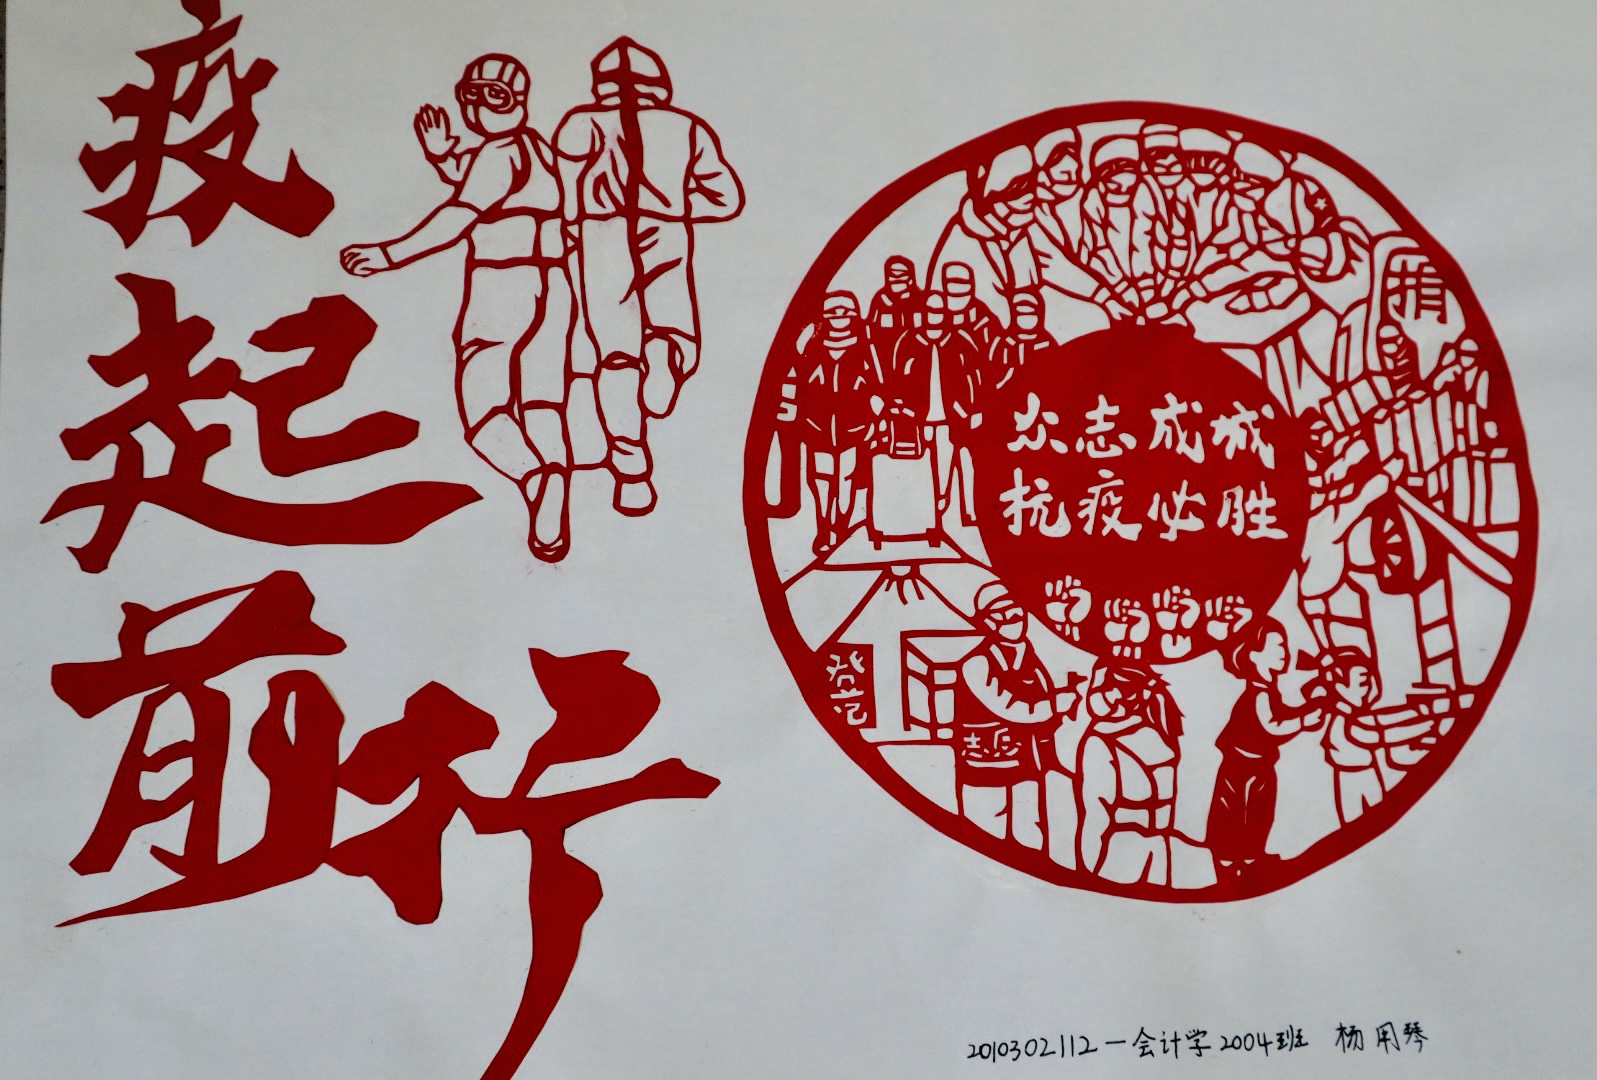 疫起前行
捐
众志成城
抗疫必胜
登记
志愿
2010302112一会计学2004班 杨用琴